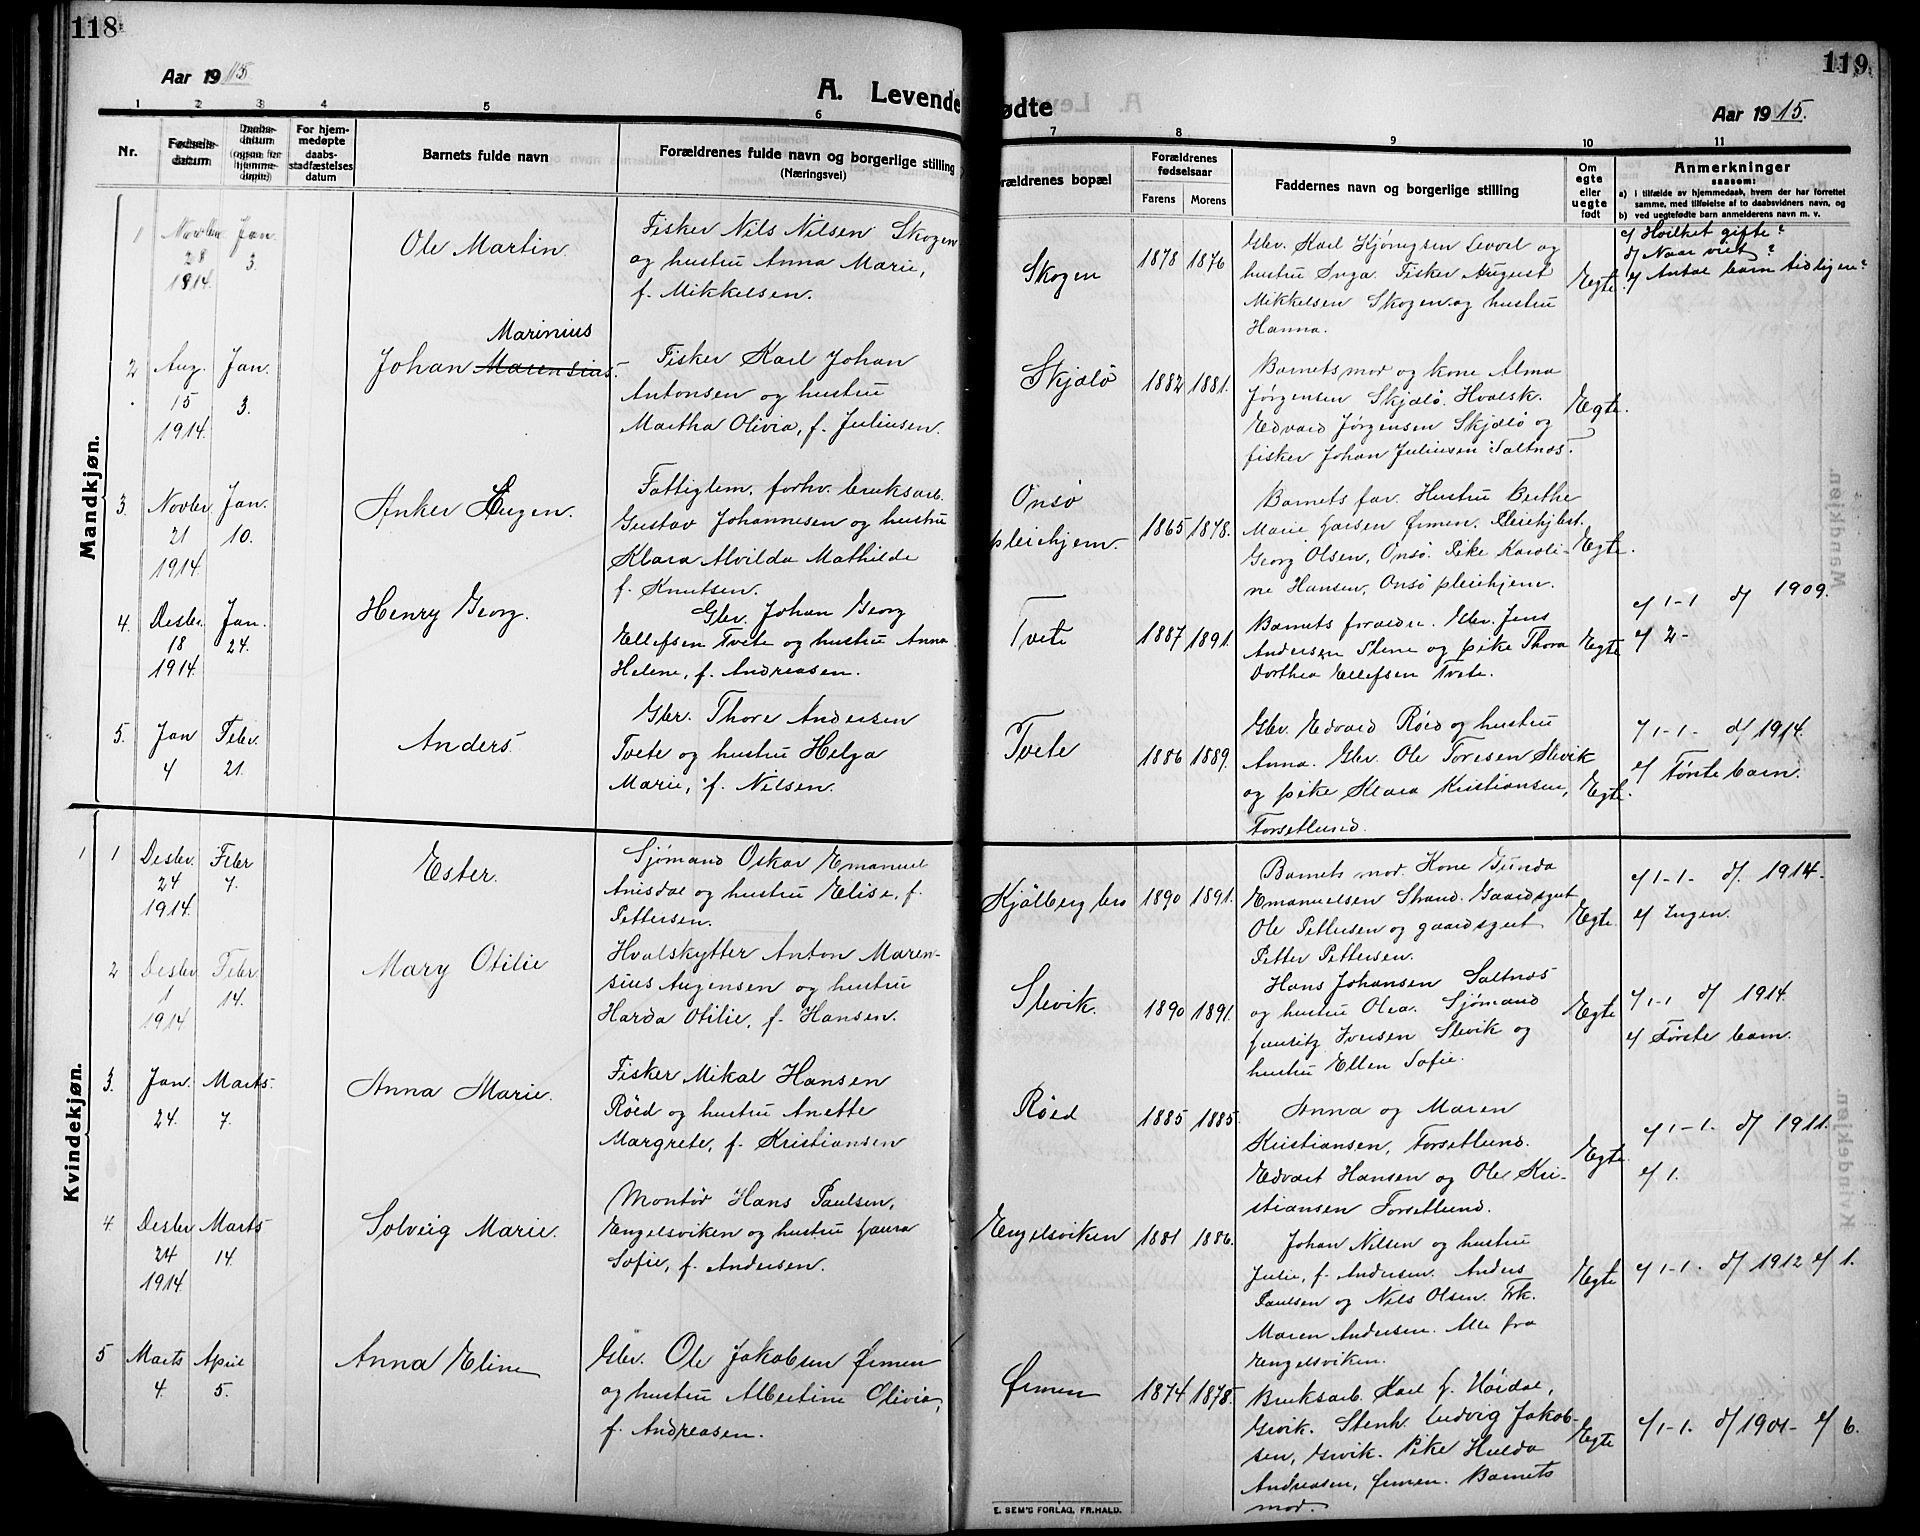 118
Aar 1915.
A. Levende
1 2 3 4 5 6
Nr.
Fødsels-
datum
Daabs-
datum
(ogsaa for
hjemme-
døpte)
For hjem-
medøpte
daabs-
stadfæstelses
datum
Barnets fulde navn
Forældrenes fulde navn og borgerlige stilling
(Næringsvei)
Mandkjøn.
1 Novber 28 1914. Jan. 3.
Ole Martin.
Fisker Nils Nilsen Skogen
og hustru Anna Marie,
f. Mikkelsen.
2 Aug. 15 1914. Jan. 3.
Marinius
Johan Marensius.
Fisker Karl Johan
Antonsen og hustru
Martha Olivia, f. Juliusen.
3. Novber 21 1914. Jan. 10.
Anker Eugen.
Fattiglem, forhv. bruksarb.
Gustav Johannesen og hustru
Klara Alvilda Mathilde
f. Knutsen.
4. Desber 18 1914. Jan. 24.
Henry Georg.
Gbr. Johan Georg
Ellefsen Tvete og hustru Anna
Helene, f. Andreasen.
5. Jan 4 Febr. 21.
Anders
Gbr. Thore Andersen
Tvete og hustru Helga
Marie, f. Nilsen.
Kvindekjøn.
1 1 Desbr. 24 1914. Febr 7.
Ester.
Sjømand Oskar Emanuel
Anisdal og hustru Elise, f.
Pettersen.
2 Desbr 1 1914 Febr 14.
Mary Otilie
Hvalskytter Anton Maren-
sius Augensen og hustru
Harda Otilie, f. Hansen.
3. Jan. 24. Marts. 7.
Anna Marie.
Fisker Mikal Hansen
Røed og hustru Anette
Margrete, f. Kristiansen
4. Desbr 24 1914. Marts 14.
Solveig Marie.
Montør Hans Paulsen,
Engelsviken og hustru Laura
Sofie, f. Andersen.
5 Marts 4. April 5.
Anna Eline
Gbr. Ole Jakobsen Ørmen
og hustru Albertine Olivia,
f. Andreasen.
119
ødte
Aar 1915.
7 8 9 10 11
orældrenes bopæl
Forældrenes
fødselsaar
Farens Morens
Faddernes navn og borgerlige stilling
Om
egte
eller
uegte
født
Anmerkninger
saasom:
a) i tilfælde av hjemmedaab, hvem der har forrettet
samme, med tilføielse af to daabsvidners navn, og
b) ved uegtefødte barn anmelderens navn m. v.
c/ Hvilket gifte?
d/ Naar viet?
e/ Antal barn tidligere?
Skogen 1878 1876
Gbr. Karl Kjønigsen Levvel og
hustru Inga. Fisker August
Mikkelsen Skogen og hustru
Hanna.
Egte.
Skjælø 1882 1881.
Barnets mor og kone Alma
Jørgensen Skjælø. Hvalsk.
Edvard Jørgensen Skjælø og
fisker Johan Juliusen Saltnæs.
Egte.
Onsø
pleiehjem. 1865 1878.
Barnets far. Hustru Berthe
Marie Larsen Ørmen. Pleiehjbest.
Georg Olsen, Onsø. Pike Karoli-
ne Hansen, Onsø pleiehjem.
Egte.
Tvete 1887 1891.
Barnets forældre. Gbr. Jens
Andersen Stene og pike Thora
Dorthea Ellefsen Tvete.
Egte
c/ 1-1 d/ 1909.
e/ 2-
Tvete 1886 1889.
Gbr. Edvard Røed og hustru
Anna. Gbr. Ole Toresen Slevik
og pike Klara Kristiansen,
Torsetlund.
Egte.
c/ 1-1. d/ 1914.
e/ Første barn.
Kjølberg bro 1890 1891.
Barnets mor. Kone Gunda
Emanuelsen Strand. Gaardsgut
Ole Pettersen og gaardsgut
Petter Pettersen.
Egte.
c/ 1-1- d/. 1914-
e/ Ingen.
Slevik. 1890 1891.
Hans Johansen Saltnæs
og hustru Olea. Sjømand
Lauritz Iversen Slevik og
hustru Ellen Sofie.
Egte
c/ 1-1 d/ 1914.
e/ Første barn.
Røed 1885 1885.
Anna og Maren
Kristiansen, Torsetlund.
Edvart Hansen og Ole Kri-
stiansen Torsetlund.
Egte.
c/ 1-1. d/ 1911.
e/ 1.
Engelsviken 1881 1886.
Johan Nilsen og hustru
Julie, f. Andersen. Anders
Paulsen og Nils Olsen. Frk.
Maren Andersen. Alle fra
Engelsviken.
Egte
c/ 1-1. d/ 1912 e/ 1.
Ørmen 1874 1878.
Bruksarb. Karl L. Høidal,
Givik. Stenh. Ludvig Jakob-
sen, Givik. Pike Hulda
Andreasen, Ørmen. Barnets
mor.
Egte
c/ 1-1. d/ 1901- e/ 6.
E. SEM'S FORLAG, FR.HALD.